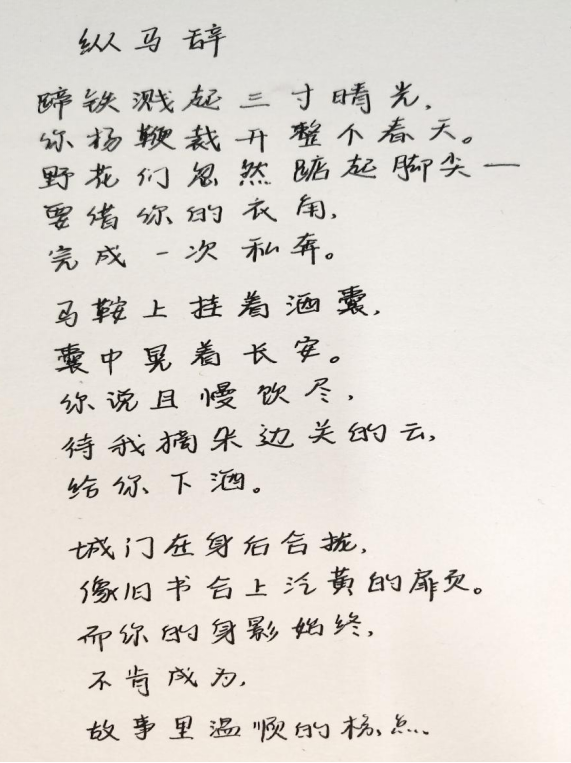 纵马辞
蹄铁溅起三寸晴光，
你杨鞭裁开整个春天。
野花们忽然踮起脚尖—
要借你的衣角，
完成一次私奔。
马鞍上挂着酒囊，
囊中晃着长安。
你说且慢饮尽，
待我摘朵边关的云，
给你下酒。
城门在身后合拢，
像旧书合上泛黄的扉页。
而你的身影始终，
不肯成为，
故事里温顺的标点。